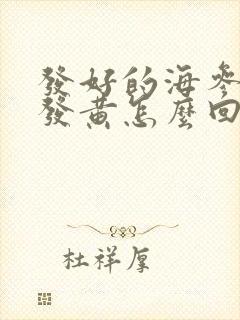 發好的海參
發黃怎麼回
杜祥厚